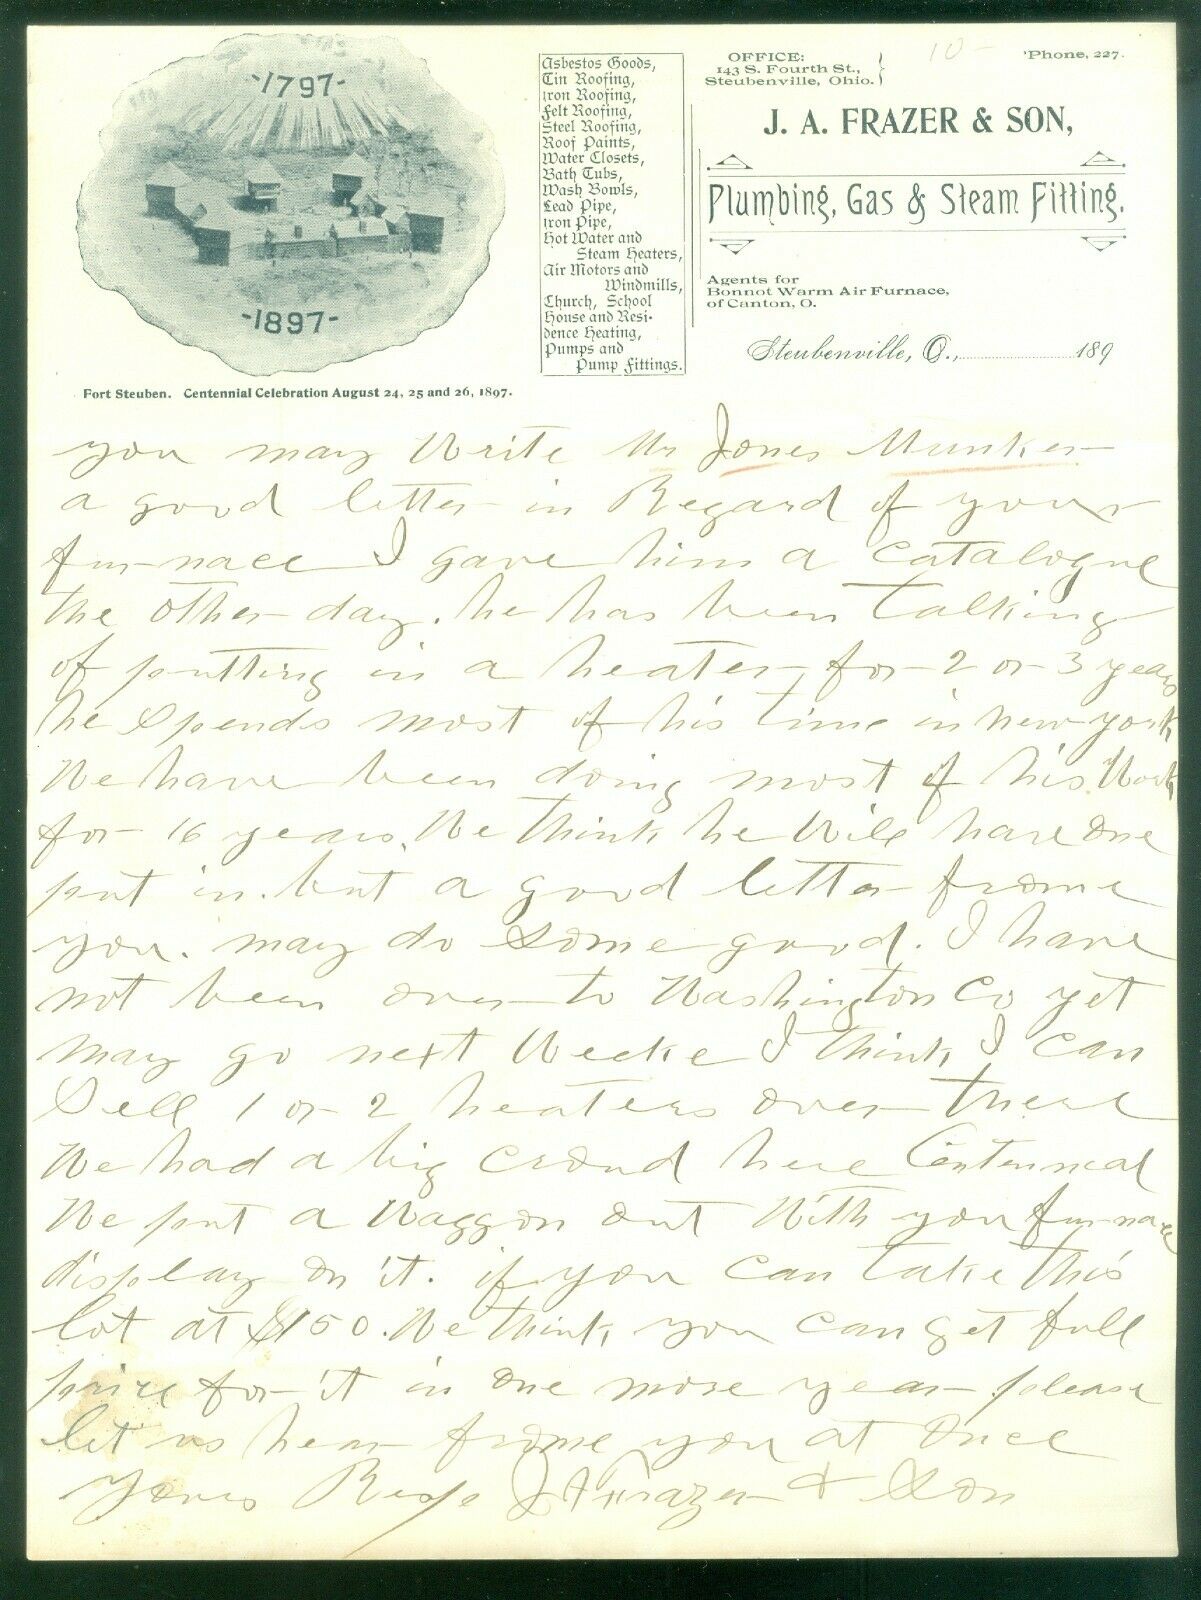 -1797-
-1897-
Fort Steuben. Centennial Celebration August 24, 25 and 26, 1897.
Asbestos Goods,
Tin Roofing,
Iron Roofing,
Felt Roofing,
Steel Roofing,
Roof Paints,
Water Closets,
Bath Tubs,
Wash Bowls,
Lead Pipe,
Iron Pipe,
Hot Water and
Steam Heaters,
Air Motors and
Windmills,
Church, School
House and Resi-
dence Heating,
Pumps and
Pump Fittings.
OFFICE:
143 S. Fourth St.,
Steubenville, Ohio.
10-
'Phone, 227.
J. A. FRAZER & SON,
Plumbing, Gas & Steam Fitting.
Agents for
Bonnot Warm Air Furnace,
of Canton, O.
Steubenville, O., 189
you may Write Mr Jones Munker
a good letter in Regard of your
furnace I gave him a Catalogue
the other day. he has been talking
of putting in a heater for 2 or 3 years
he Spends most of his time in new york
We have been doing most of his Work
for 16 years, We think he Will have one
put in. but a good letter frome
you. may do Some good. I have
not been over to Washington Co yet
may go next Weeke I think I can
Sell 1 or 2 heaters over there
We had a big croud here Centenneal
We put a Waggon out With you furnace
display on it. if you can take this
lot at $150. We think you can get full
price for it in one more year please
let us hear frome you at Once
Yours Resp J A Frazer & Son